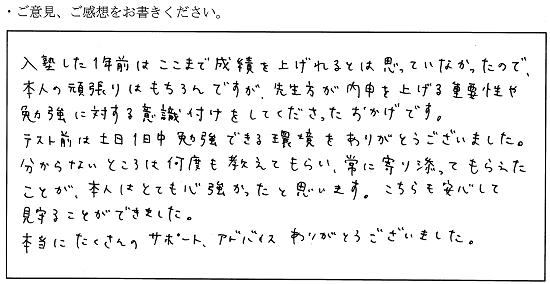 ・ご意見、ご感想をお書きください。
入塾した1年前はここまで成績を上げれるとは思っていなかったので、
本人の頑張りはもちろんですが、先生方が内申を上げる重要性や
勉強に対する意識付けをしてくださったおかげです。
テスト前は土日1日中勉強できる環境をありがとうございました。
分からないところは何度も教えてもらい、常に寄り添ってもらえた
ことが、本人はとても心強かったと思います。こちらも安心して
見守ることができました。
本当にたくさんのサポート、アドバイスありがとうございました。